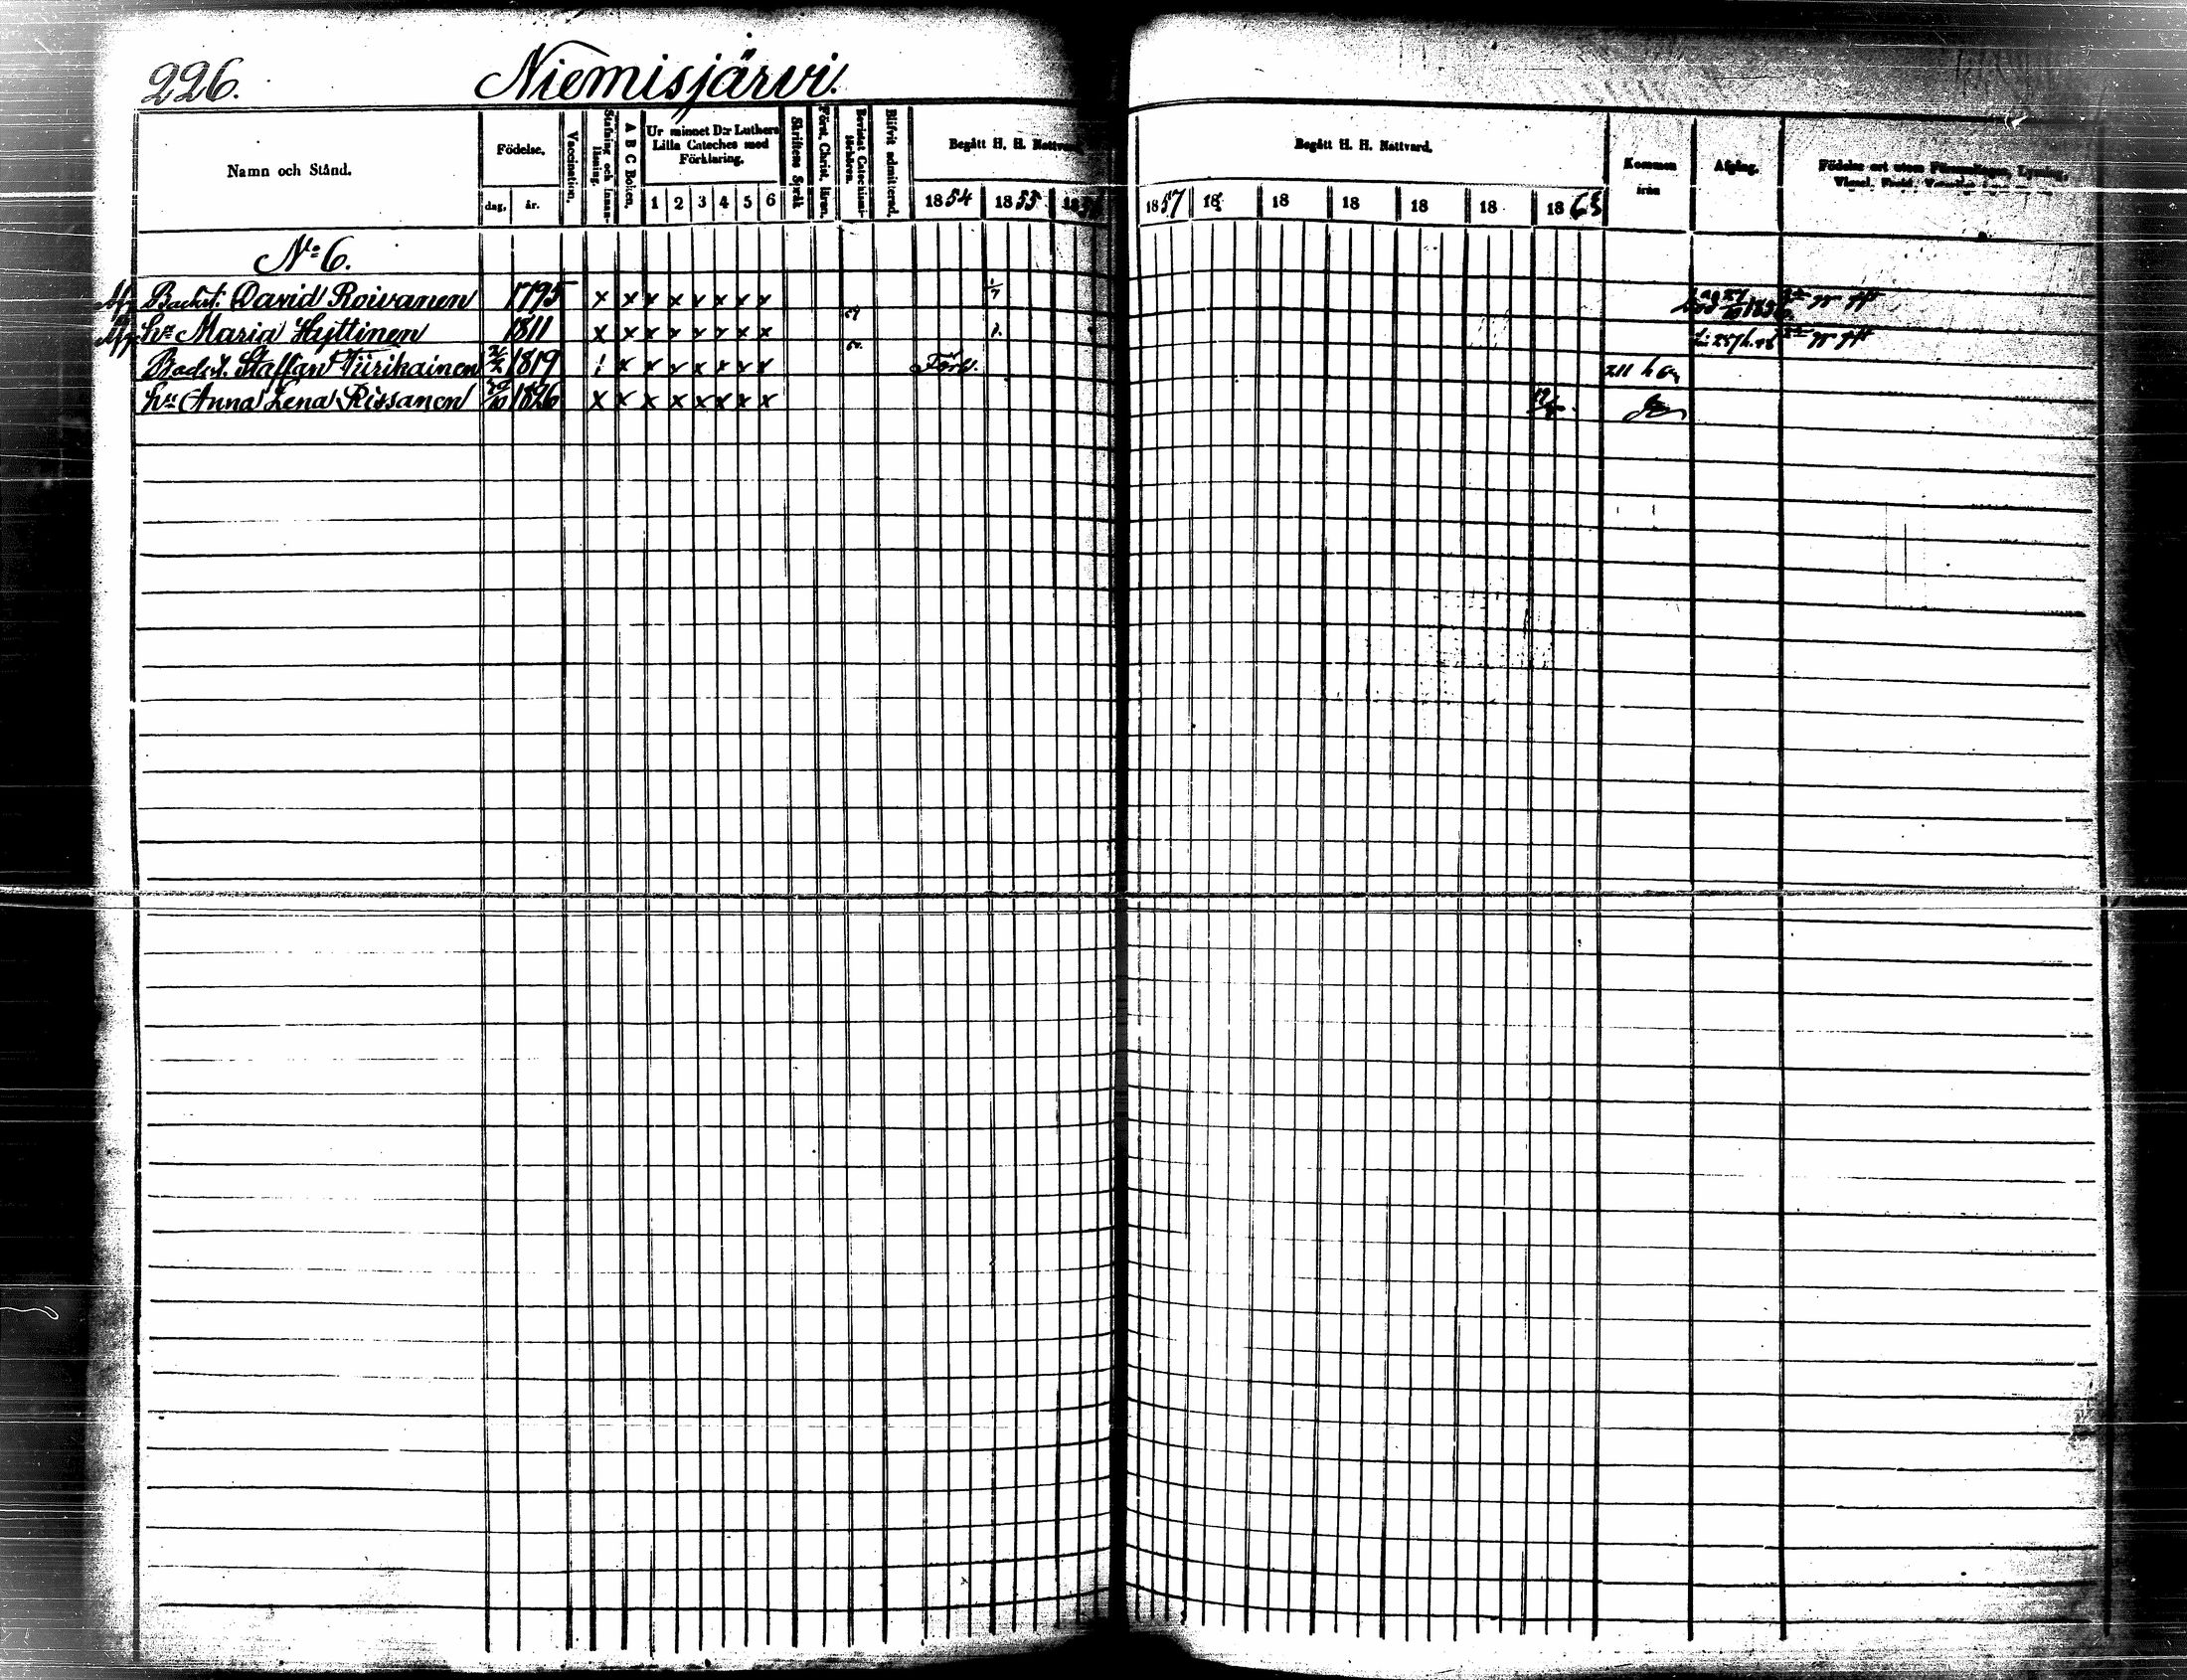 226. Niemisjärvi.
Namn och Stånd.
Födelse.
dag. år.
Vaccination.
Stafning och Innan-läsning.
A B C Boken.
Ur minnet D:r Luthers Lilla Cateches med Förklaring.
1 2 3 4 5 6
Skriftens Språk
Först. Christ. läran.
Bevistat Catechismi-förhören.
Blifvit admitterad.
Begått H. H. Nattvard
1854 1855
Begått H. H. Nattvard.
1857 18 18 18 18 18 1863
Kommen från
Afgång.
Födelse ort utom Församlingen, Lysning,
No 6.
Backst. David Roivanen 1795 x x x x x x x x
hu Maria Hyttinen 1811 x x x x x x x x
Backst. Staffan Tiirikainen 1819 x x x x x x x Förb.
hu Anna Lena Rissanen 1826 x x x x x x x x